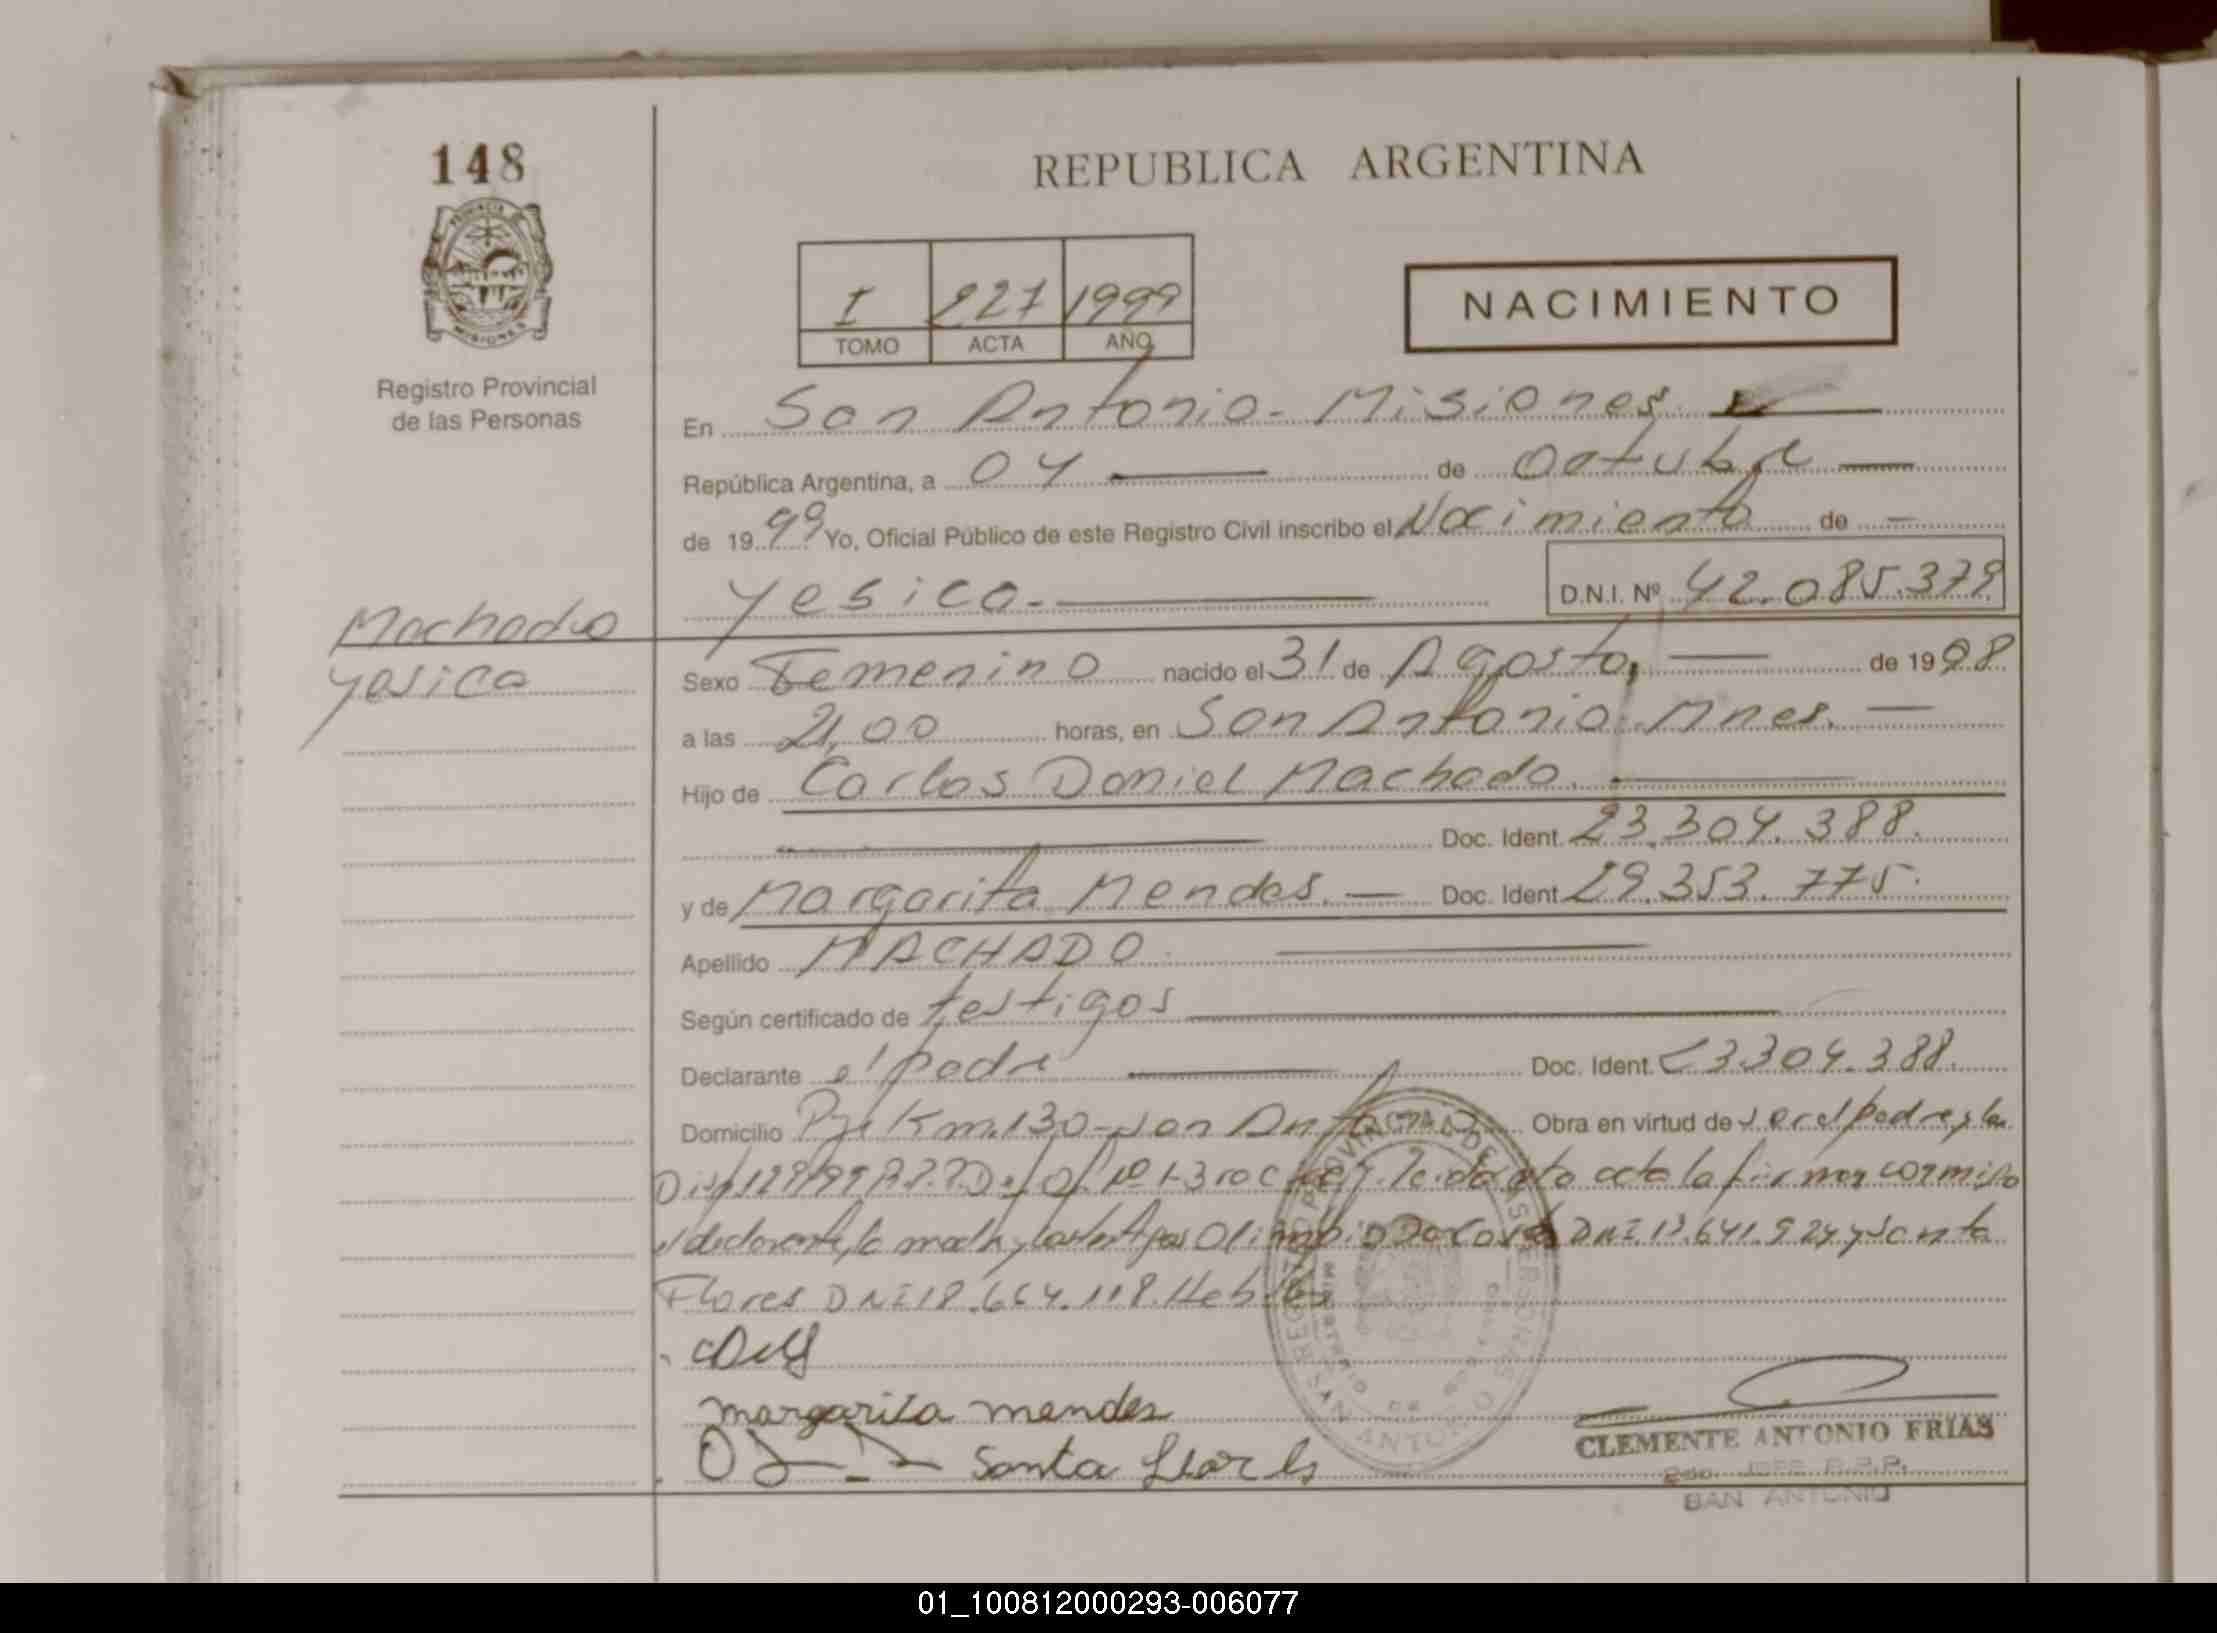 148
REPUBLICA ARGENTINA
PROVINCIA DE
MISIONES
Registro Provincial
de las Personas
I 227 1999
TOMO ACTA AÑO
NACIMIENTO
En San Antonio - Misiones
República Argentina, a 04 de Octubre
de 1999 Yo, Oficial Público de este Registro Civil inscribo el Nacimiento de
Yesica. D.N.I. Nº 42.085.379
Machado
Yesica
Sexo Femenino nacido el 31 de Agosto, de 1998
a las 21,00 horas, en San Antonio. Mnes.
Hijo de Carlos Daniel Machado.
Doc. Ident. 23.304.388.
y de Margarita Mendes. Doc. Ident. 29.353.775.
Apellido MACHADO.
Según certificado de testigos
Declarante el padre Doc. Ident. 23.304.388.
Domicilio Pje Km. 130 - San Ant Obra en virtud de ser el padre y la
Leida esta acta la firman conmigo
el declarante, la madre y los testigos Olimpio Da Costa DNI 13.641.924 y Santa
Flores DNI 18.664.118.
CDM
margarita mendes
Santa flores
CLEMENTE ANTONIO FRIAS
2do. JEFE R.P.P.
SAN ANTONIO
01_100812000293-006077